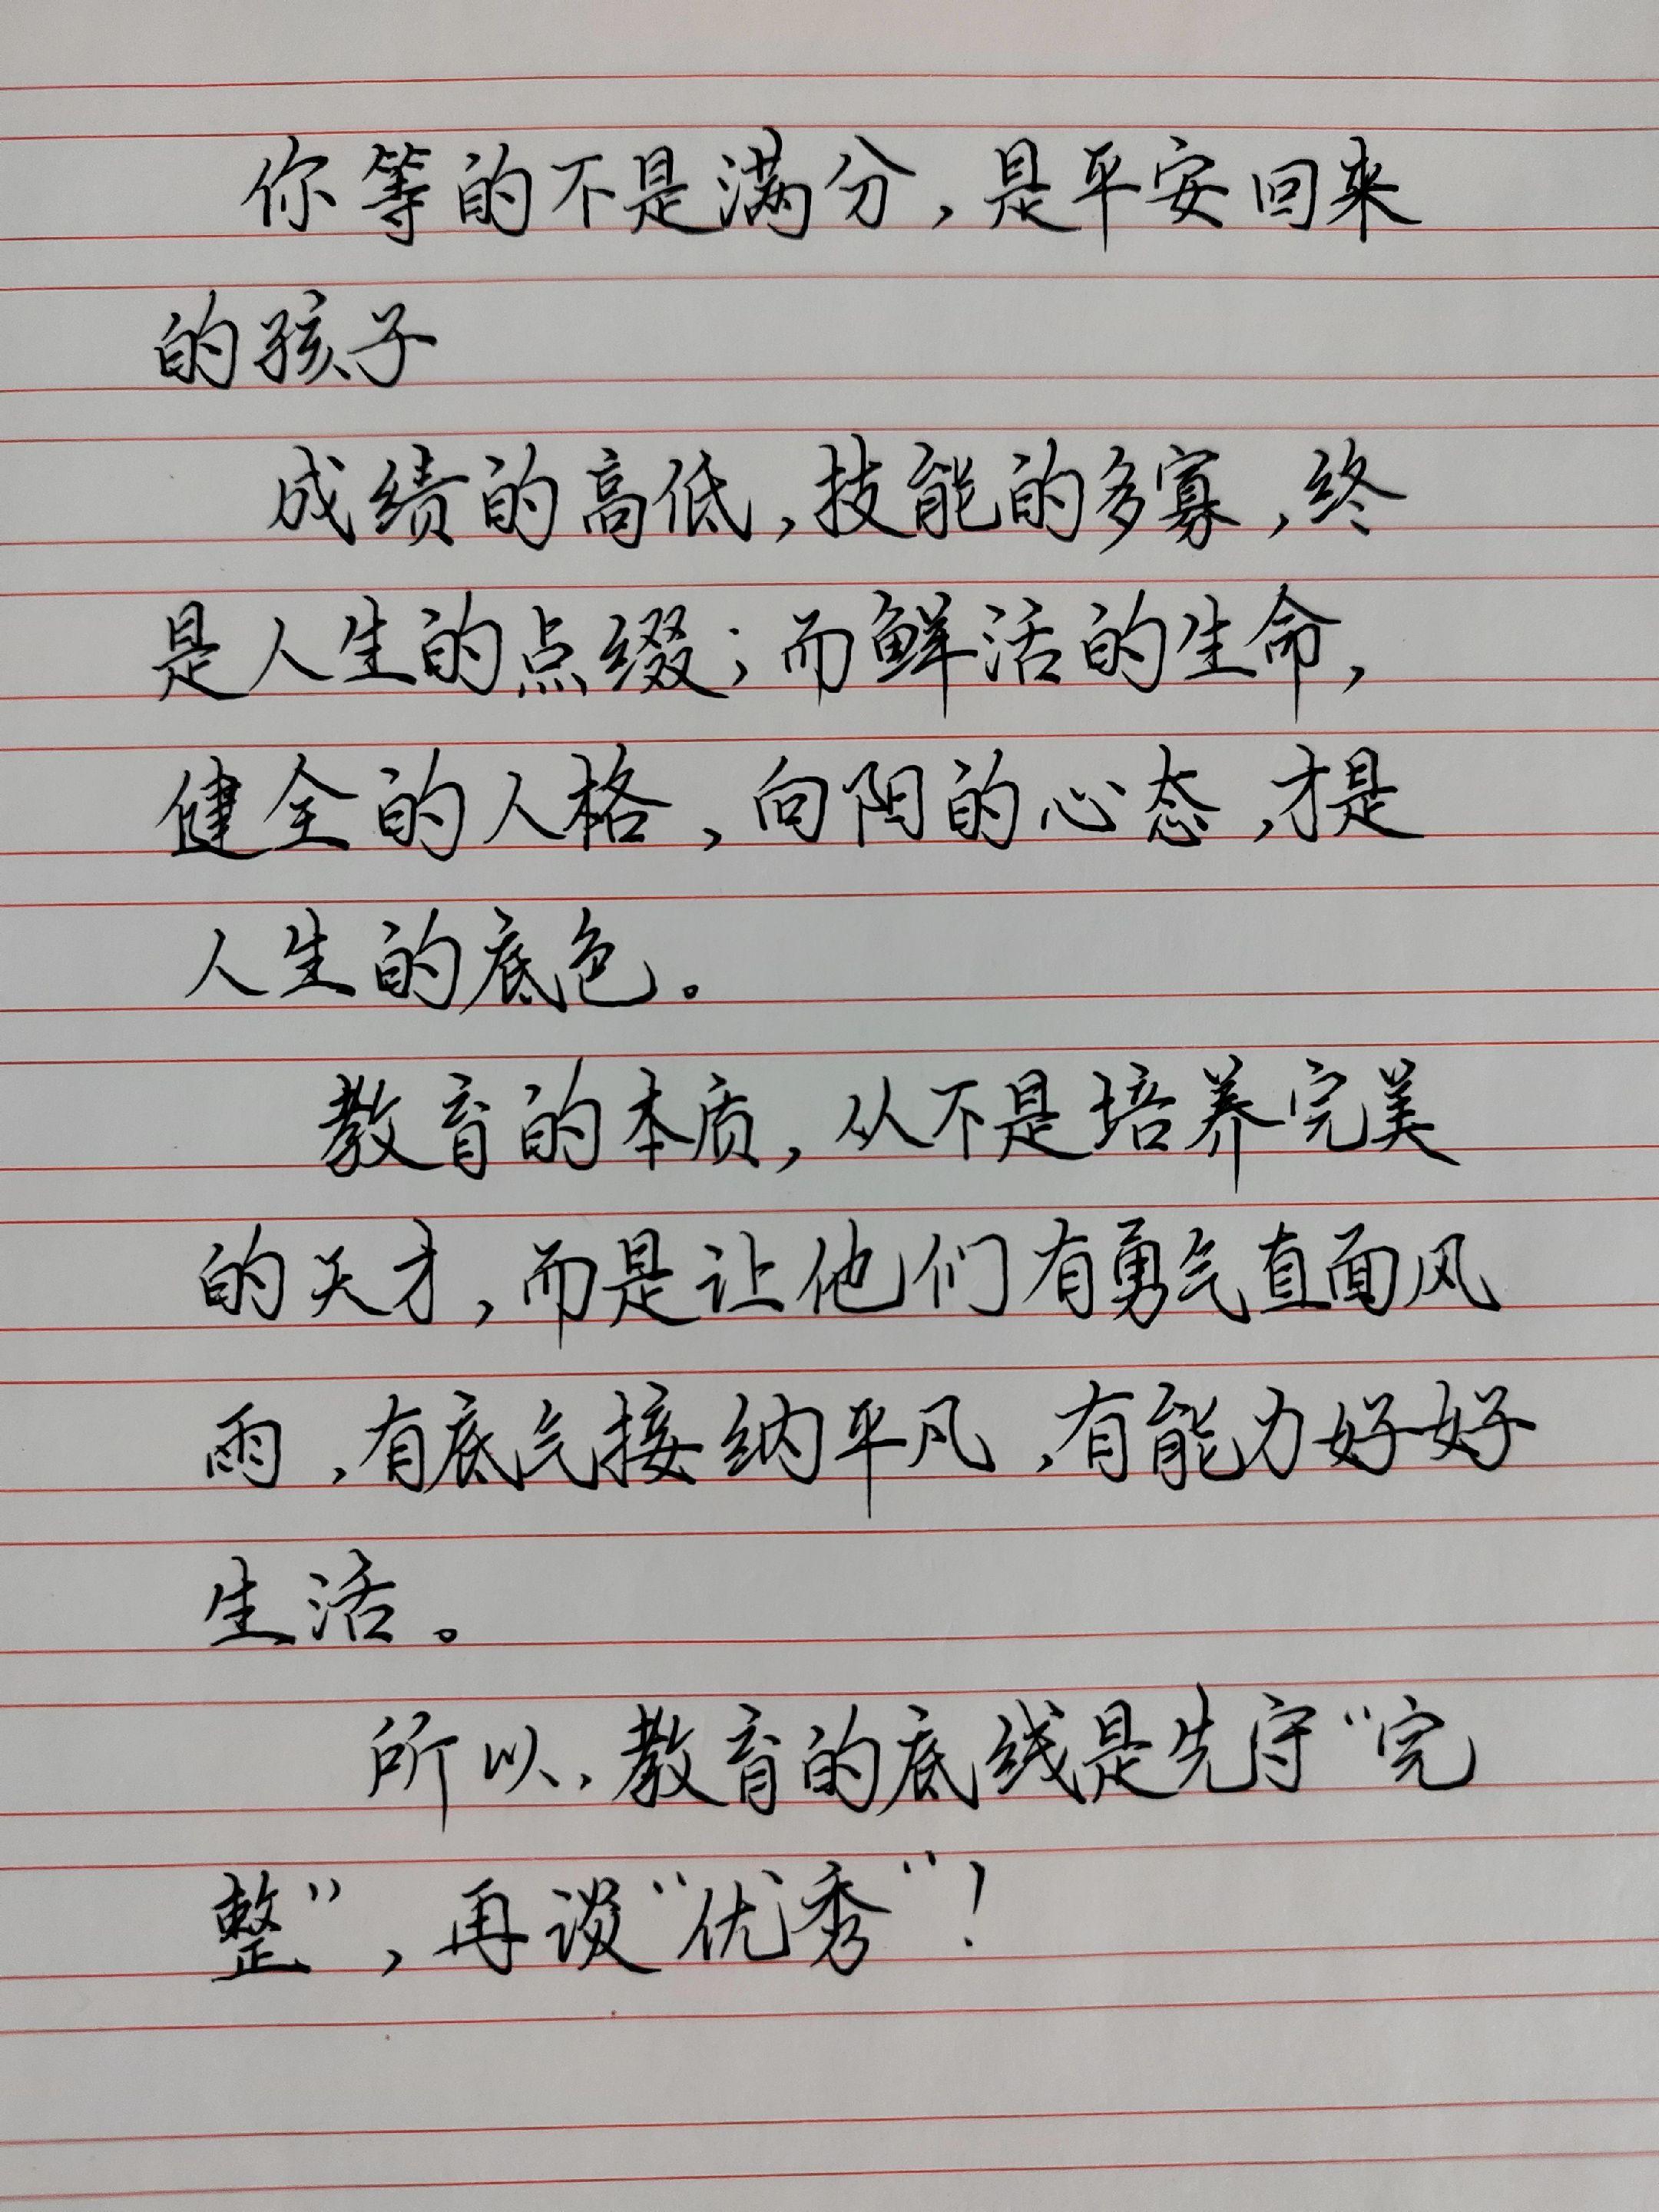 你等的不是满分,是平安回来
的孩子
成绩的高低,技能的多寡,终
是人生的点缀;而鲜活的生命,
健全的人格,向阳的心态,才是
人生的底色。
教育的本质,从不是培养完美
的天才,而是让他们有勇气直面风
雨,有底气接纳平凡,有能力好好
生活。
所以,教育的底线是先守“完
整”,再谈“优秀“!